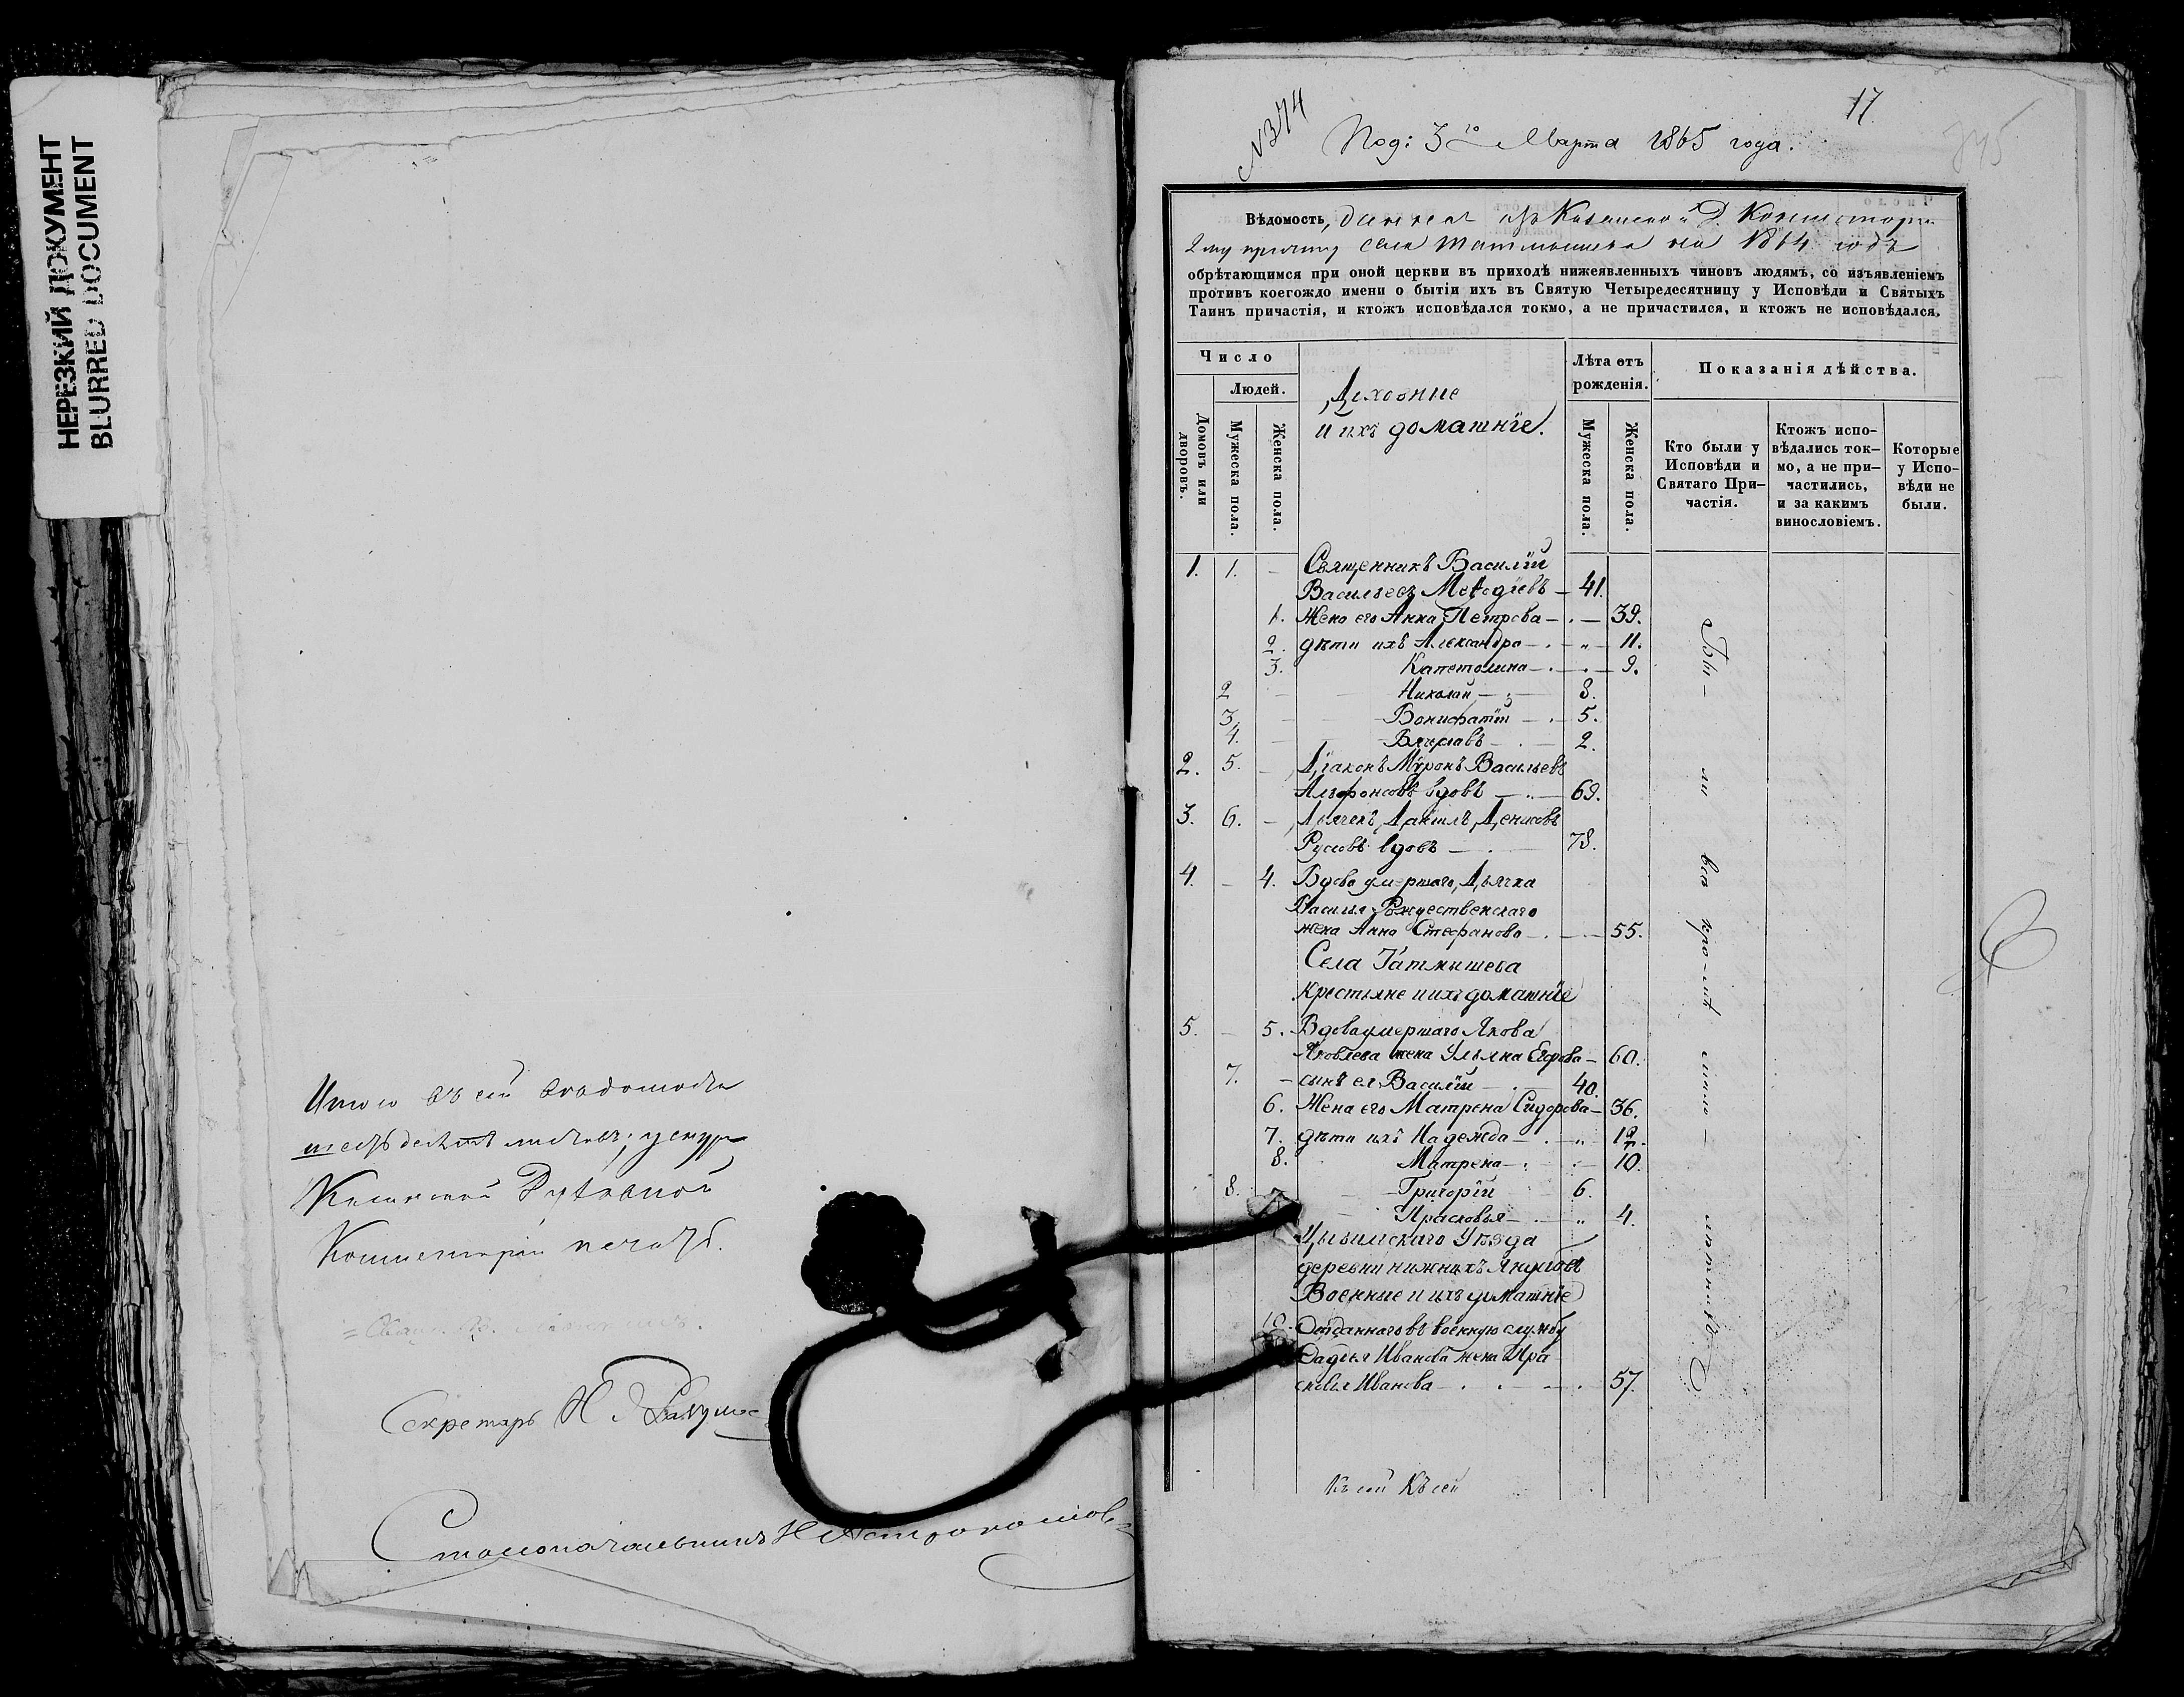 НЕРЕЗКИЙ ДОКУМЕНТ
BLURRED DOCUMENT
Итого въ сей
листовъ;
Духовной
Консисторіи печать.
Секретарь Н.
Столоначальникъ Н Астрономовъ
№374
17
745
Под: 3го Марта 1865 года.
Вѣдомость, данная изъ Казанской Д. Консисторіи
2му причту села на 1864 годъ
обрѣтающимся при оной церкви въ приходѣ нижеявленныхъ чиновъ людямъ, со изъявленіемъ
противъ коегождо имени о бытіи ихъ въ Святую Четыредесятницу у Исповѣди и Святыхъ
Таинъ причастія, и ктожъ исповѣдался токмо, а не причастился, и ктожъ не исповѣдался.
Число
Людей.
Домовъ или дворовъ.
Мужеска пола.
Женска пола.
Духовные
и ихъ домашніе.
Лѣта отъ рожденія.
Мужеска пола.
Женска пола.
Показанія дѣйства.
Кто были у Исповѣди и Святаго При-частія.
Ктожъ испо-вѣдались ток-мо, а не при-частились, и за какимъ винословіемъ.
Которые у Испо-вѣди не были.
1. 1. – Священникъ Василій
Васильевъ Меѳодіевъ – 41.
1. Жена его Анна Петрова – 39.
2. дѣти ихъ Александра – „ – 11.
3. Капетолина – 9.
2 Николай – 8.
3, Вонифатій – 5.
4. Вячеславъ 2.
2. 5. – Діаконъ Мѵронъ Васильевъ
вдовъ – 69.
3. 6. – Дьячекъ Даніилъ Денисовъ
вдовъ – 78.
4. – 4. Вдова умершаго Дьячка
Василья Рождественскаго
жена Анна Стефанова – 55.
Села Татмышева
Крестьяне и ихъ домашніе
5. – 5. Вдова умершаго Якова
Яковлева жена Ульяна Егорова – 60.
7. – сынъ ея Василій – 40.
6. Жена его Матрена Сидорова – 36.
7. дѣти ихъ Надежда – „
8. Матрена – 10.
8. Григорій 6.
Прасковья – „ 4.
Цывильскаго Уѣзда
деревни нижнихъ
Военные и ихъ домашніе
10. Отданнаго въ военную службу
Иванова жена Пра
сковья Иванова – 57.
Бы – ли всѣ кро – мѣ
Къ сей Къ сей